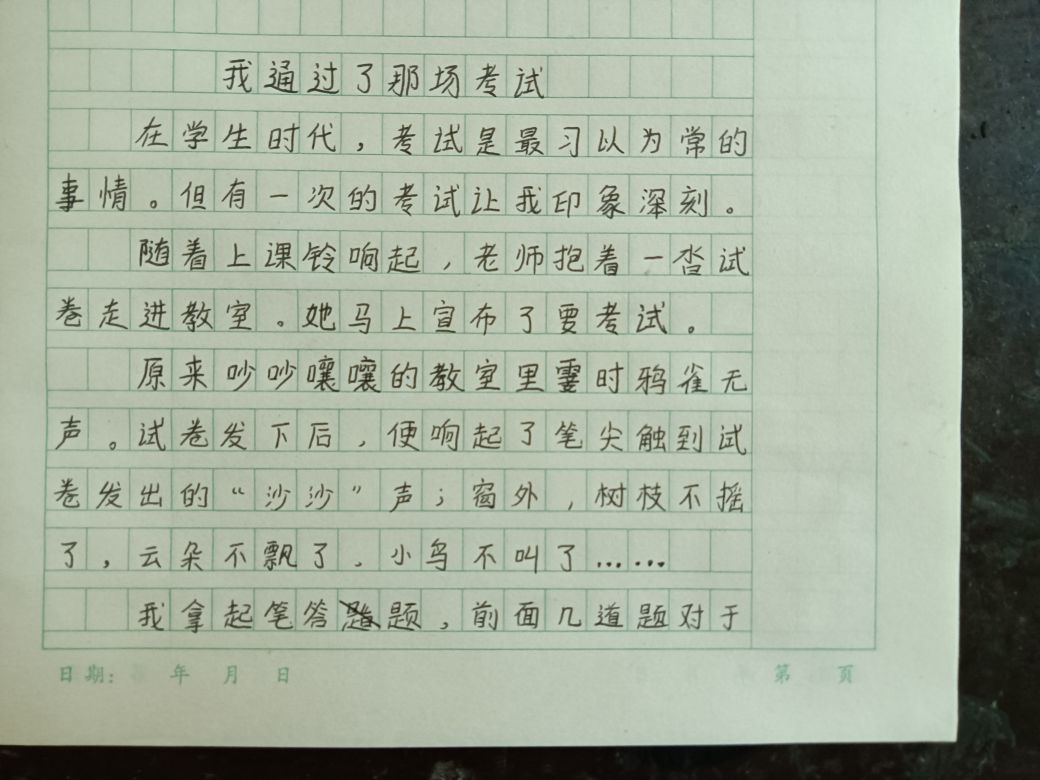 我通过了那场考试
在学生时代，考试是最习以为常的
事情。但有一次的考试让我印象深刻。
随着上课铃响起，老师抱着一沓试
卷走进教室。她马上宣布了要考试。
原来吵吵嚷嚷的教室里霎时鸦雀无
声。试卷发下后，便响起了笔尖触到试
卷发出的“沙沙”声；窗外，树枝不摇
了，云朵不飘了、小鸟不叫了……
我拿起笔答题，前面几道题对于
日期： 年 月 日 第 页